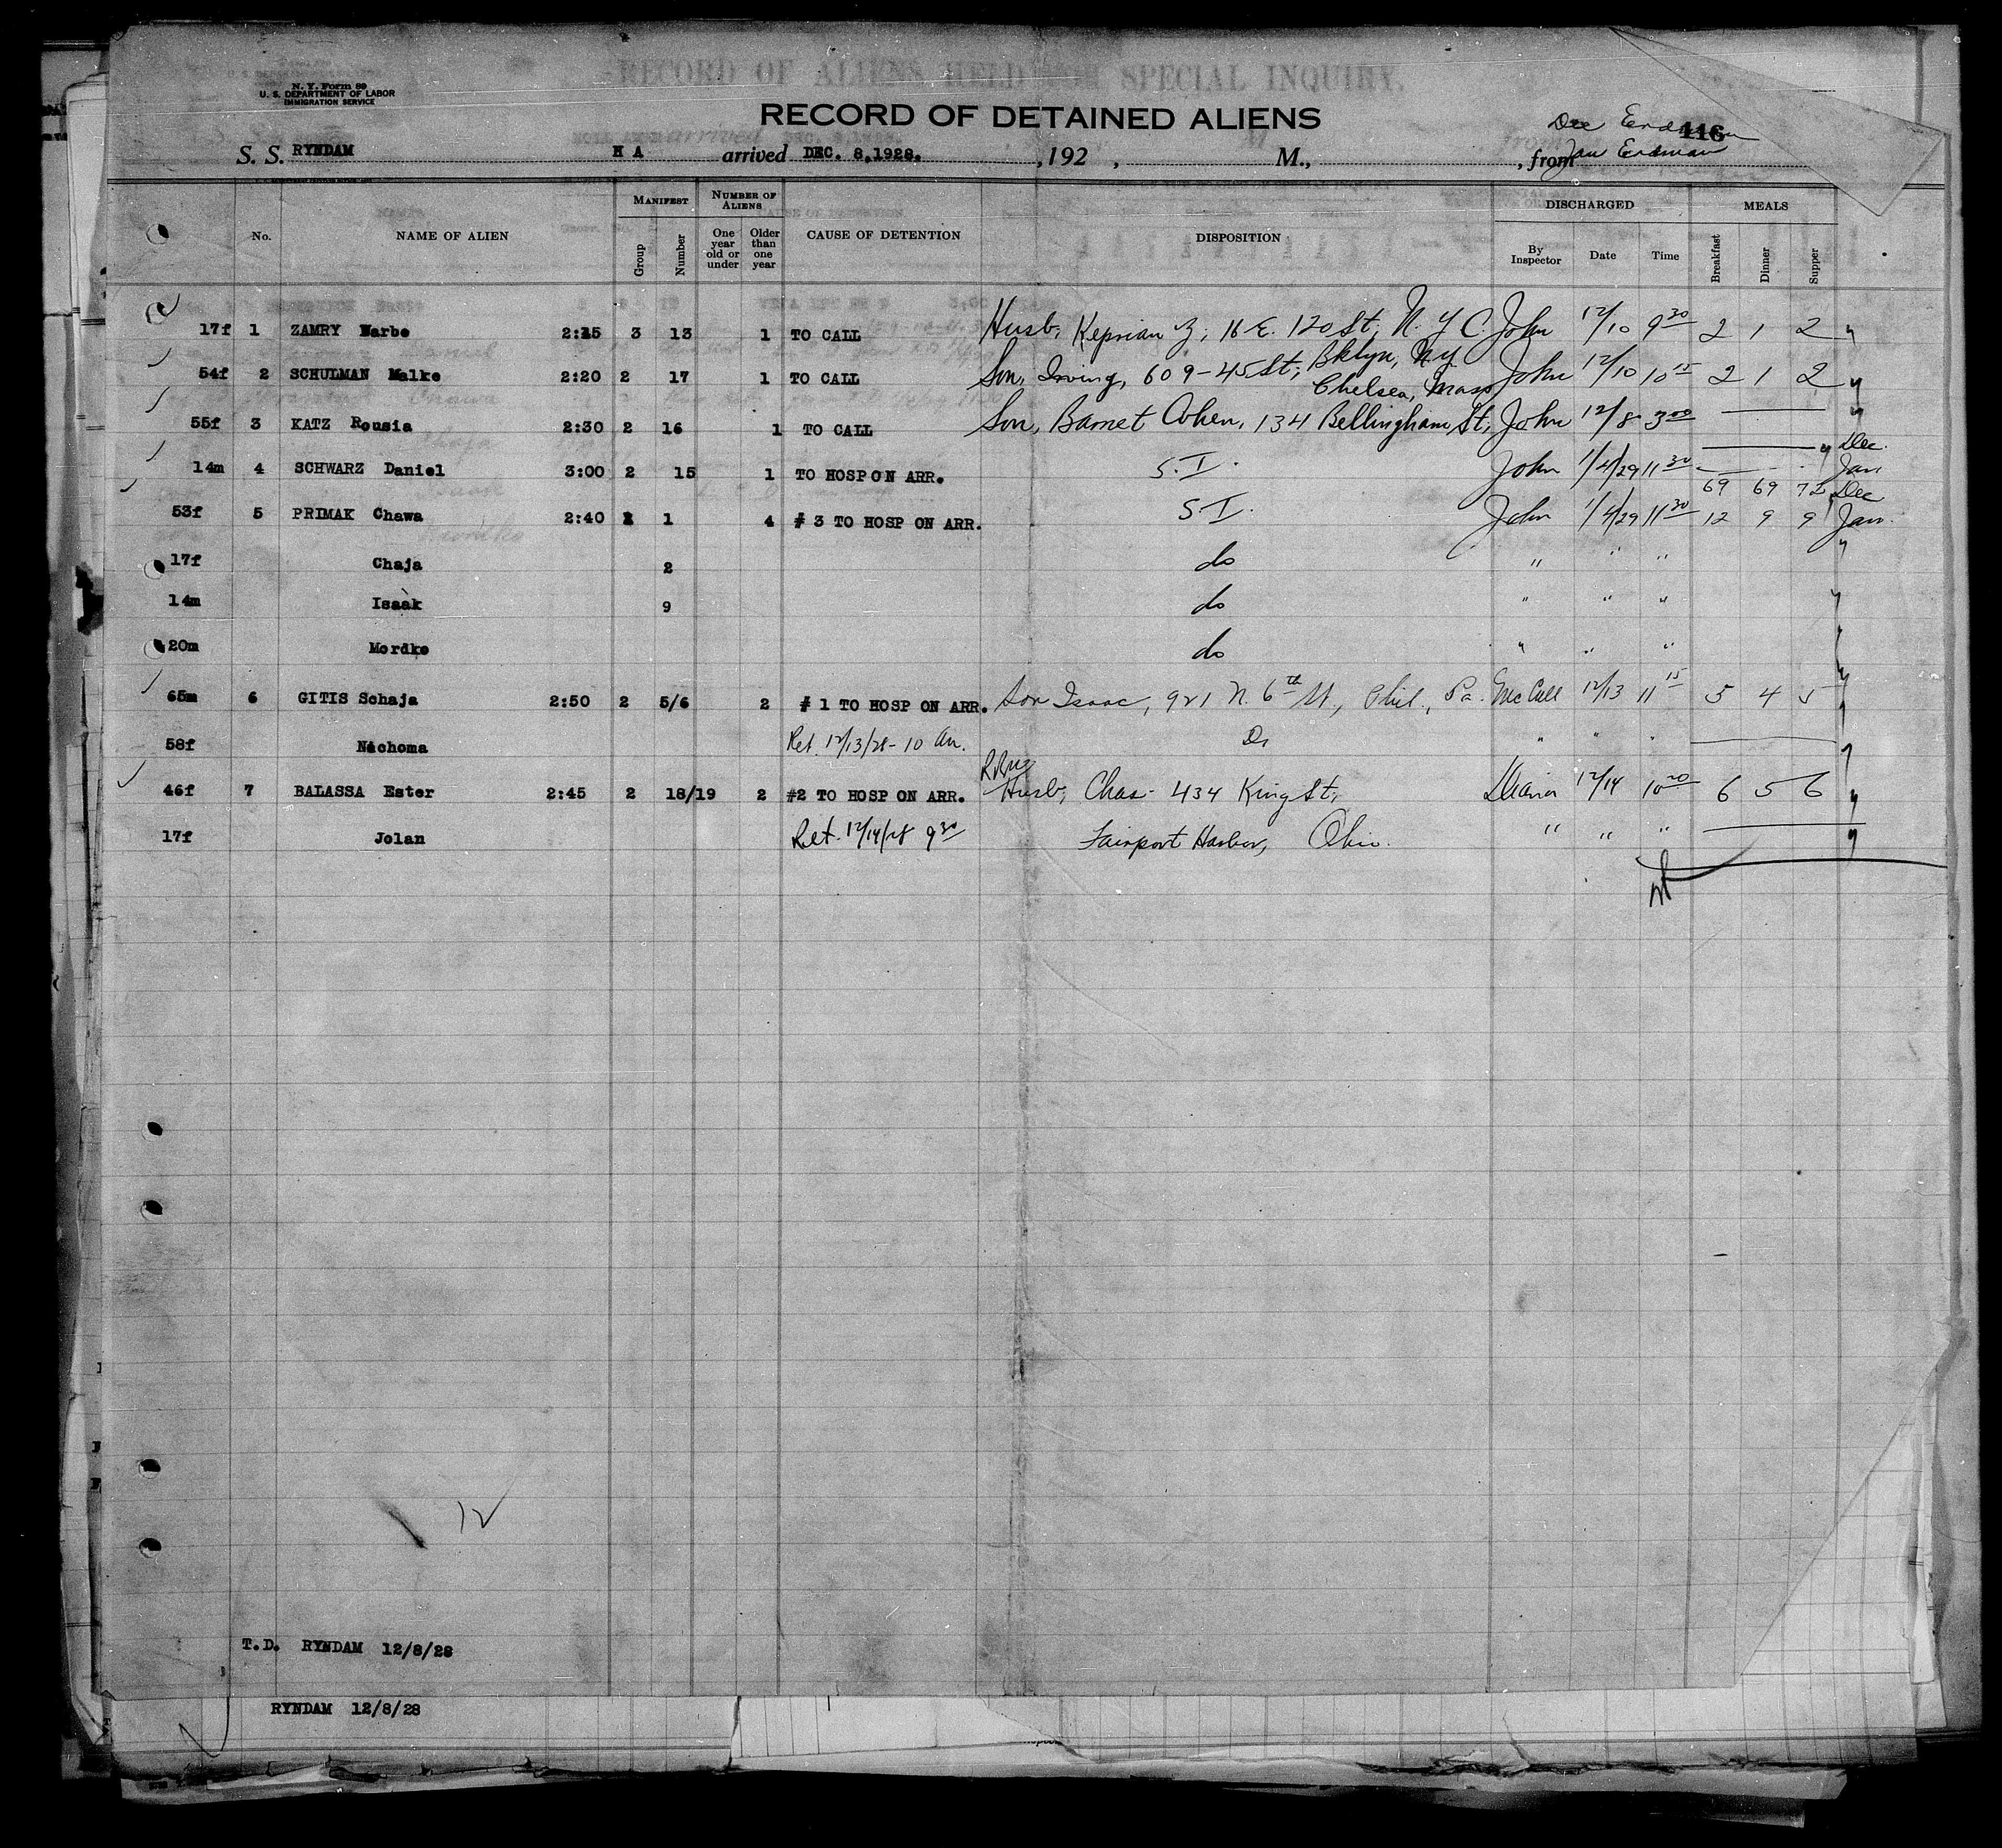 N. Y. Form 89
U. S. DEPARTMENT OF LABOR
IMMIGRATION SERVICE
RECORD OF ALIENS HELD FOR SPECIAL INQUIRY.
RECORD OF DETAINED ALIENS
116
Dec Erdman
S. S. RYNDAM H A arrived DEC. 8,1928. , 192 , M., , from Jan Erdman
No. NAME OF ALIEN MANIFEST Group Number NUMBER OF ALIENS One year old or under Older than one year CAUSE OF DETENTION DISPOSITION DISCHARGED By Inspector Date Time MEALS Breakfast Dinner Supper
17f 1 ZAMRY Warbe 2:15 3 13 1 TO CALL Husb, Keprian Z, 16 E. 120 St, N. Y. C. John 12/10 9 30 2 1 2
54f 2 SCHULMAN Malke 2:20 2 17 1 TO CALL Son, Irving, 609-45 St, Bklyn, NY John 12/10 10 15 2 1 2
Chelsea, Mass
55f 3 KATZ Rousia 2:30 2 16 1 TO CALL Son, Barnet Cohen, 134 Bellingham St, John 12/8 3 00
Dec.
14m 4 SCHWARZ Daniel 3:00 2 15 1 TO HOSP ON ARR. S.I. John 1/4/29 11 30 Jan
69 69 72 Dec
53f 5 PRIMAK Chawa 2:40 2 1 4 # 3 TO HOSP ON ARR. S.I. John 1/4/29 11 30 12 9 9 Jan.
17f Chaja 2 do " " "
14m Isaak 9 do " " "
20m Mordko do " " "
65m 6 GITIS Schaja 2:50 2 5/6 2 # 1 TO HOSP ON ARR. Son Isaac, 921 N. 6th St., Phil., Pa. McCall 12/13 11 15 5 4 5
58f Nechoma Ret. 12/13/28 - 10 Am. Do " " "
46f 7 BALASSA Ester 2:45 2 18/19 2 #2 TO HOSP ON ARR. Husb, Chas. 434 King St, 12/14 10 20 6 5 6
17f Jolan Ret. 12/14/28 9 30 Fairport Harbor, Ohio. " " "
12
T.D. RYNDAM 12/8/28
RYNDAM 12/8/28